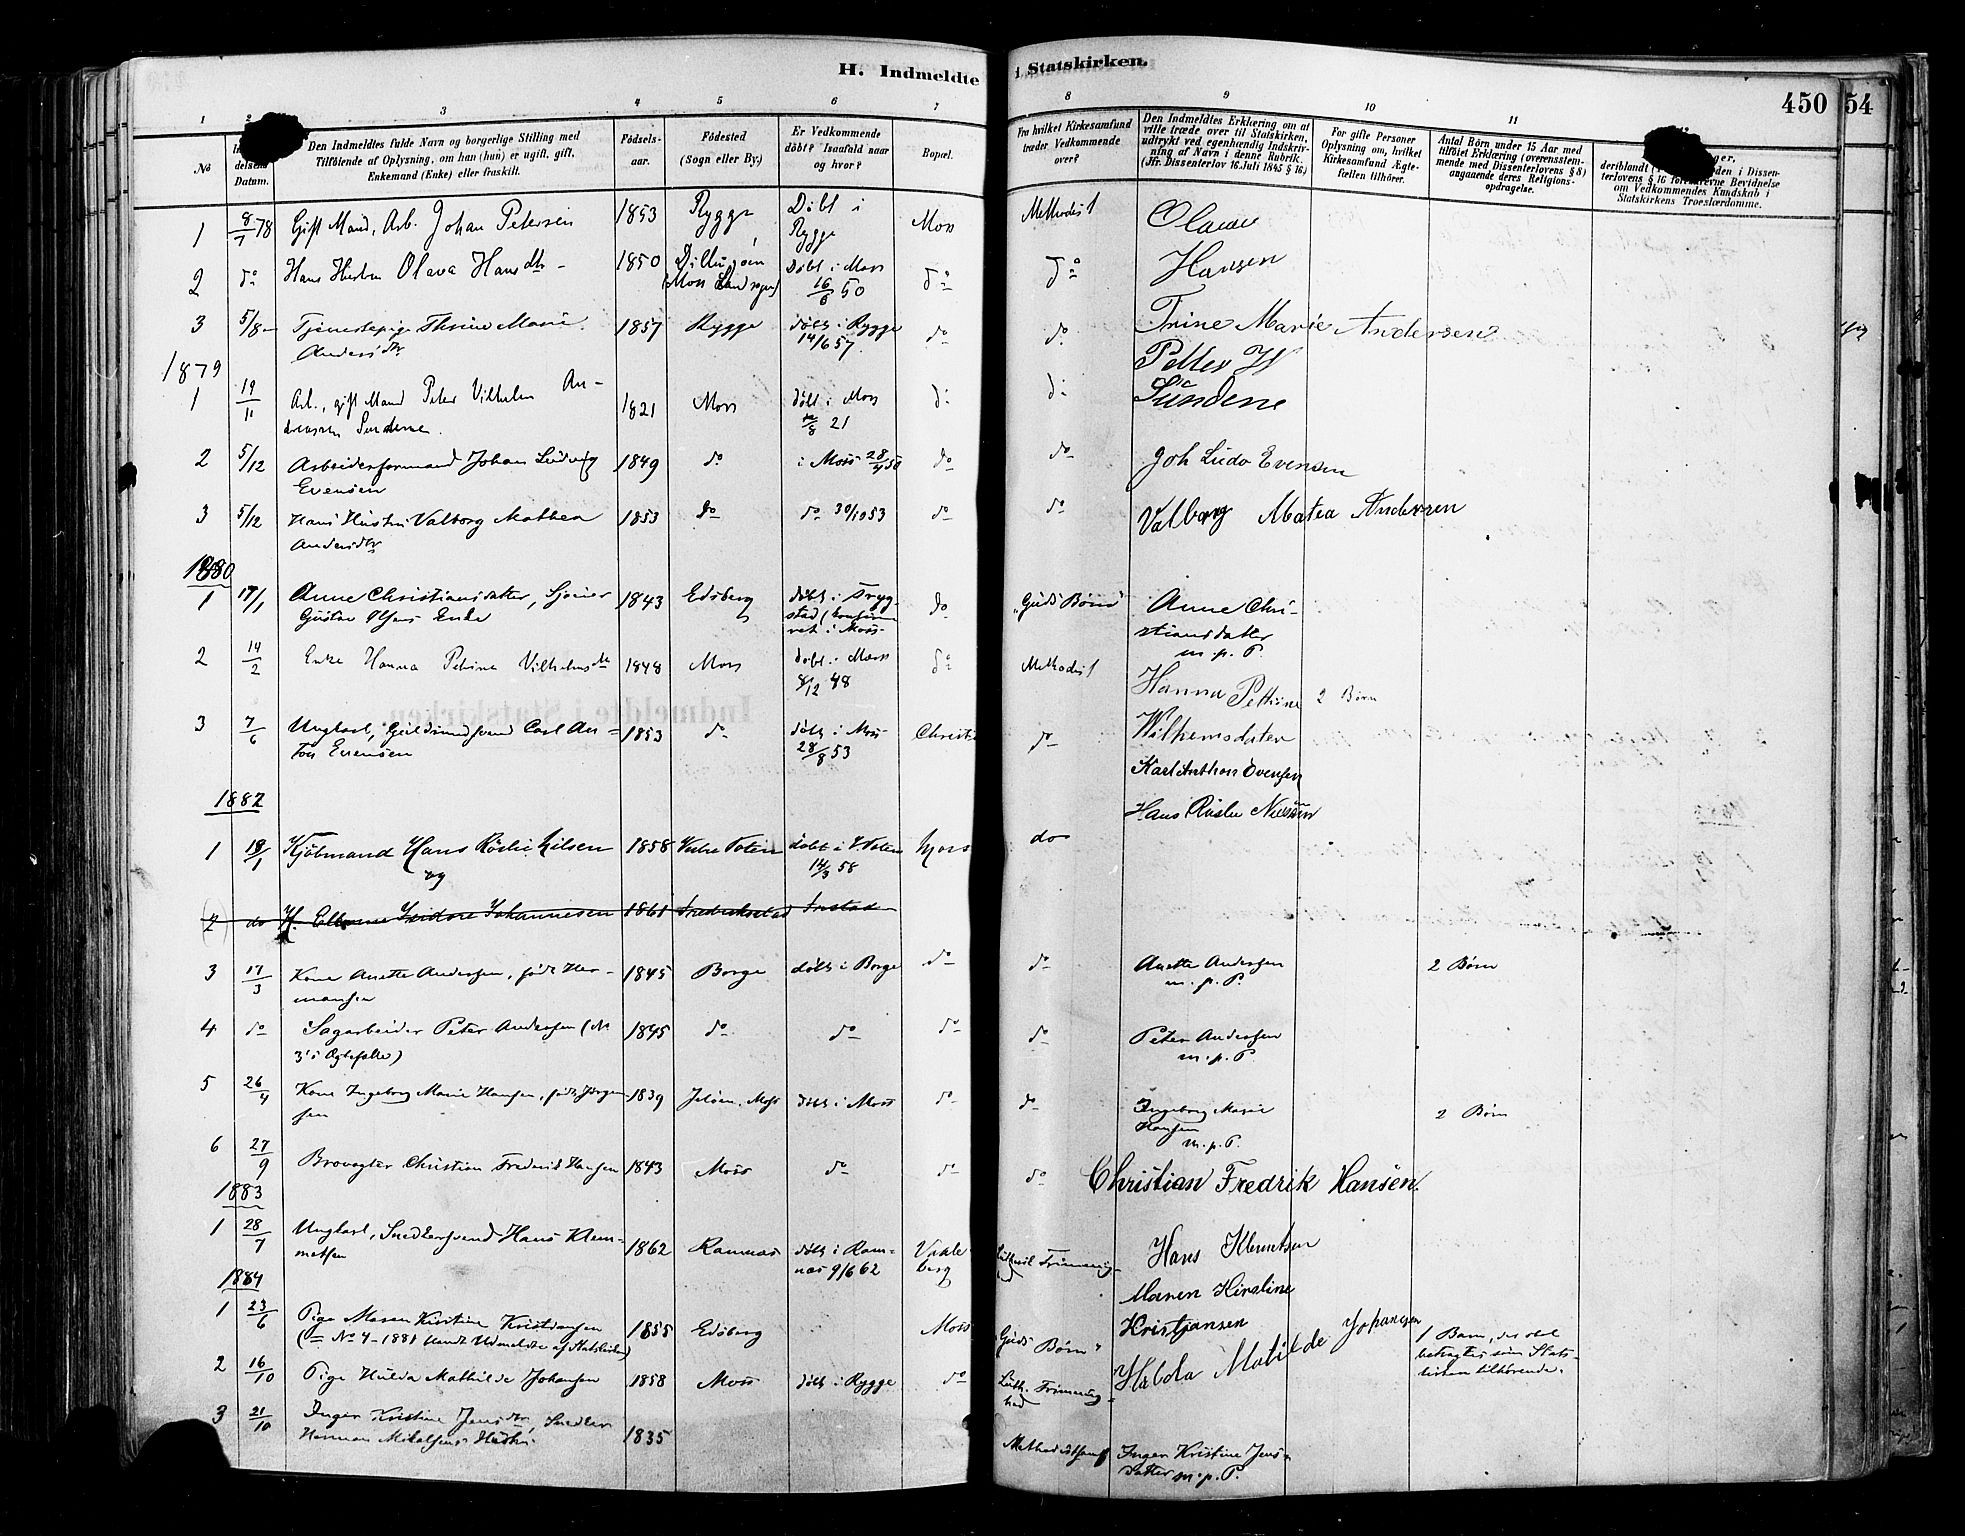 H. Indmeldte i Statskirken.
450 54
1 2 3 4 5 6 7 8 9 10 11
No
delsens Datum.
Den Indmeldtes fulde Navn og borgerlige Stilling med
Tilföiende af Oplysning, om han (hun) er ugift, gift,
Enkemand (Enke) eller fraskilt.
Födsels-
aar.
Födested
(Sogn eller By.)
Er Vedkommende
döbt? Isaafald naar
og hvor?
Bopæl.
Fra hvilket Kirkesamfund
træder Vedkommende
over?
Den Indmeldtes Erklæring om at
ville træde over til Statskirken,
udtrykt ved egenhændig Indskriv-
ning af Navn i denne Rubrik.
(Jfr. Dissenterlov 16. Juli 1845 § 16.)
For gifte Personer
Oplysning om, hvilket
Kirkesamfund Ægte-
fællen tilhörer.
Antal Börn under 15 Aar med
tilföiet Erklæring (overensstem-
mende med Dissenterlovens § 8)
angaaende deres Religions-
opdragelse.
deriblandt
den i Dissen-
terlovens § 16
Bevidnelse
om Vedkommendes Kundskab i
Statskirkens Troeslærdomme.
1 8/7 78 Gift Mand, Arb. Johan Petersen 1853 Rygge Döbt i Rygge Moss Methodist Olava
2 do Hans Hustru Olava Hansdtr 1850 (Moss Landsogn) Döbt i Moss 16/6 50 do do Hansen
3 5/8 Tjenestepige Thrine Marie Andersdtr 1857 Rygge döbt i Rygge 14/6 57 do do Trine Marie Andersen
1879
1 19/11 Arb., gift Mand Peter Vilhelm Andreassen Sundene 1821 Moss döbt i Moss 21 do do Petter W Sundene
2 5/12 Arbeidsformand Johan Ludvig Evensen 1849 do i Moss 28/4 50 do do Joh Ludv Evensen
3 5/12 Hans Hustru Valborg Mathea Andersdtr 1853 do do 30/10 53 do do Valborg Matea Andersen
1880
1 17/1 Anne Christiansdatter, Gustav Olsens Enke 1843 Edsberg döbt i Trygstad (konfirmeret i Moss do "Guds Börn" Anne Christiansdatter m.p.P.
2 14/2 Enke Hanna Petrine Vilhelmsdtr 1848 Moss döbt i Moss 8/12 48 do Methodist Hanna Pettrine Wilhemsdater 2 Börn
3 7/6 Ungkarl, Guldsmedsvend Carl Anton Evensen 1853 do döbt i Moss 28/8 53 Christi do Karl Anthon Evensen
1882
1 18/1 Kjöbmand Hans Röslie Nilsen og 1858 Vestre Toten döbt i V. Toten 14/3 58 Moss do Hans Röslie Nielsen
2 do H. Isidore Johannesen 1861 Fredrikstad
3 17/3 Kone Anette Andersen, född Hermansen 1845 Borge döbt i Borge do do Anette Andersen m.p.P. 2 Börn
4 do Sagarbeider Peter Andersen (No 3's Ægtefælle) 1845 do do do do Peter Andersen m.p.P.
5 26/4 Kone Ingeborg Marie Hansen, född Jörgensen 1839 Jelöen, Moss döbt i Moss do do Ingeborg Marie Hansen m.p.P. 2 Börn
6 27/9 Brovogter Christian Frederik Hansen 1843 Moss do do do Christian Fredrik Hansen.
1883
1 28/7 Ungkarl, Snedkersvend Hans Klemmetsen 1862 Ramnæs döbt i Ramnæs 9/6 62 Vaaleberg Frimenighed Hans Klemetsen
1884
1 23/6 Pige Maren Kirstine Kristiansen (= No 4 - 1881 blandt Udmeldte af Statskirken) 1855 Edsberg Moss "Guds Börn" Maren Kirstine Kristjansen 1 Barn, der skal betragtes som Statskirken tilhörende.
2 16/10 Pige Hulda Mathilde Johansen 1858 Moss döbt i Rygge do Luth. Frimenighed Hulda Matilde Johansen
3 21/10 Inger Kristine Jensdtr, Snedker Herman Mikalsens Hustru 1835 Methodistsamf Inger Kristine Jensdatter m.p.P.